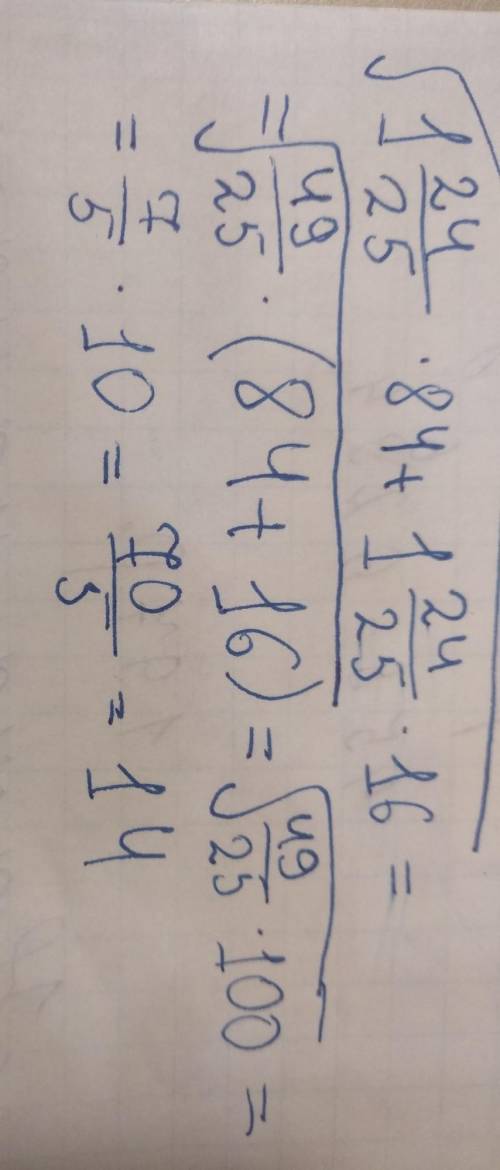 √1 24/25 · 84 + 1 24/25 · 16 =
= √49/25 · (84 + 16) = √49/25 · 100 =
= 7/5 · 10 = 70/5 = 14